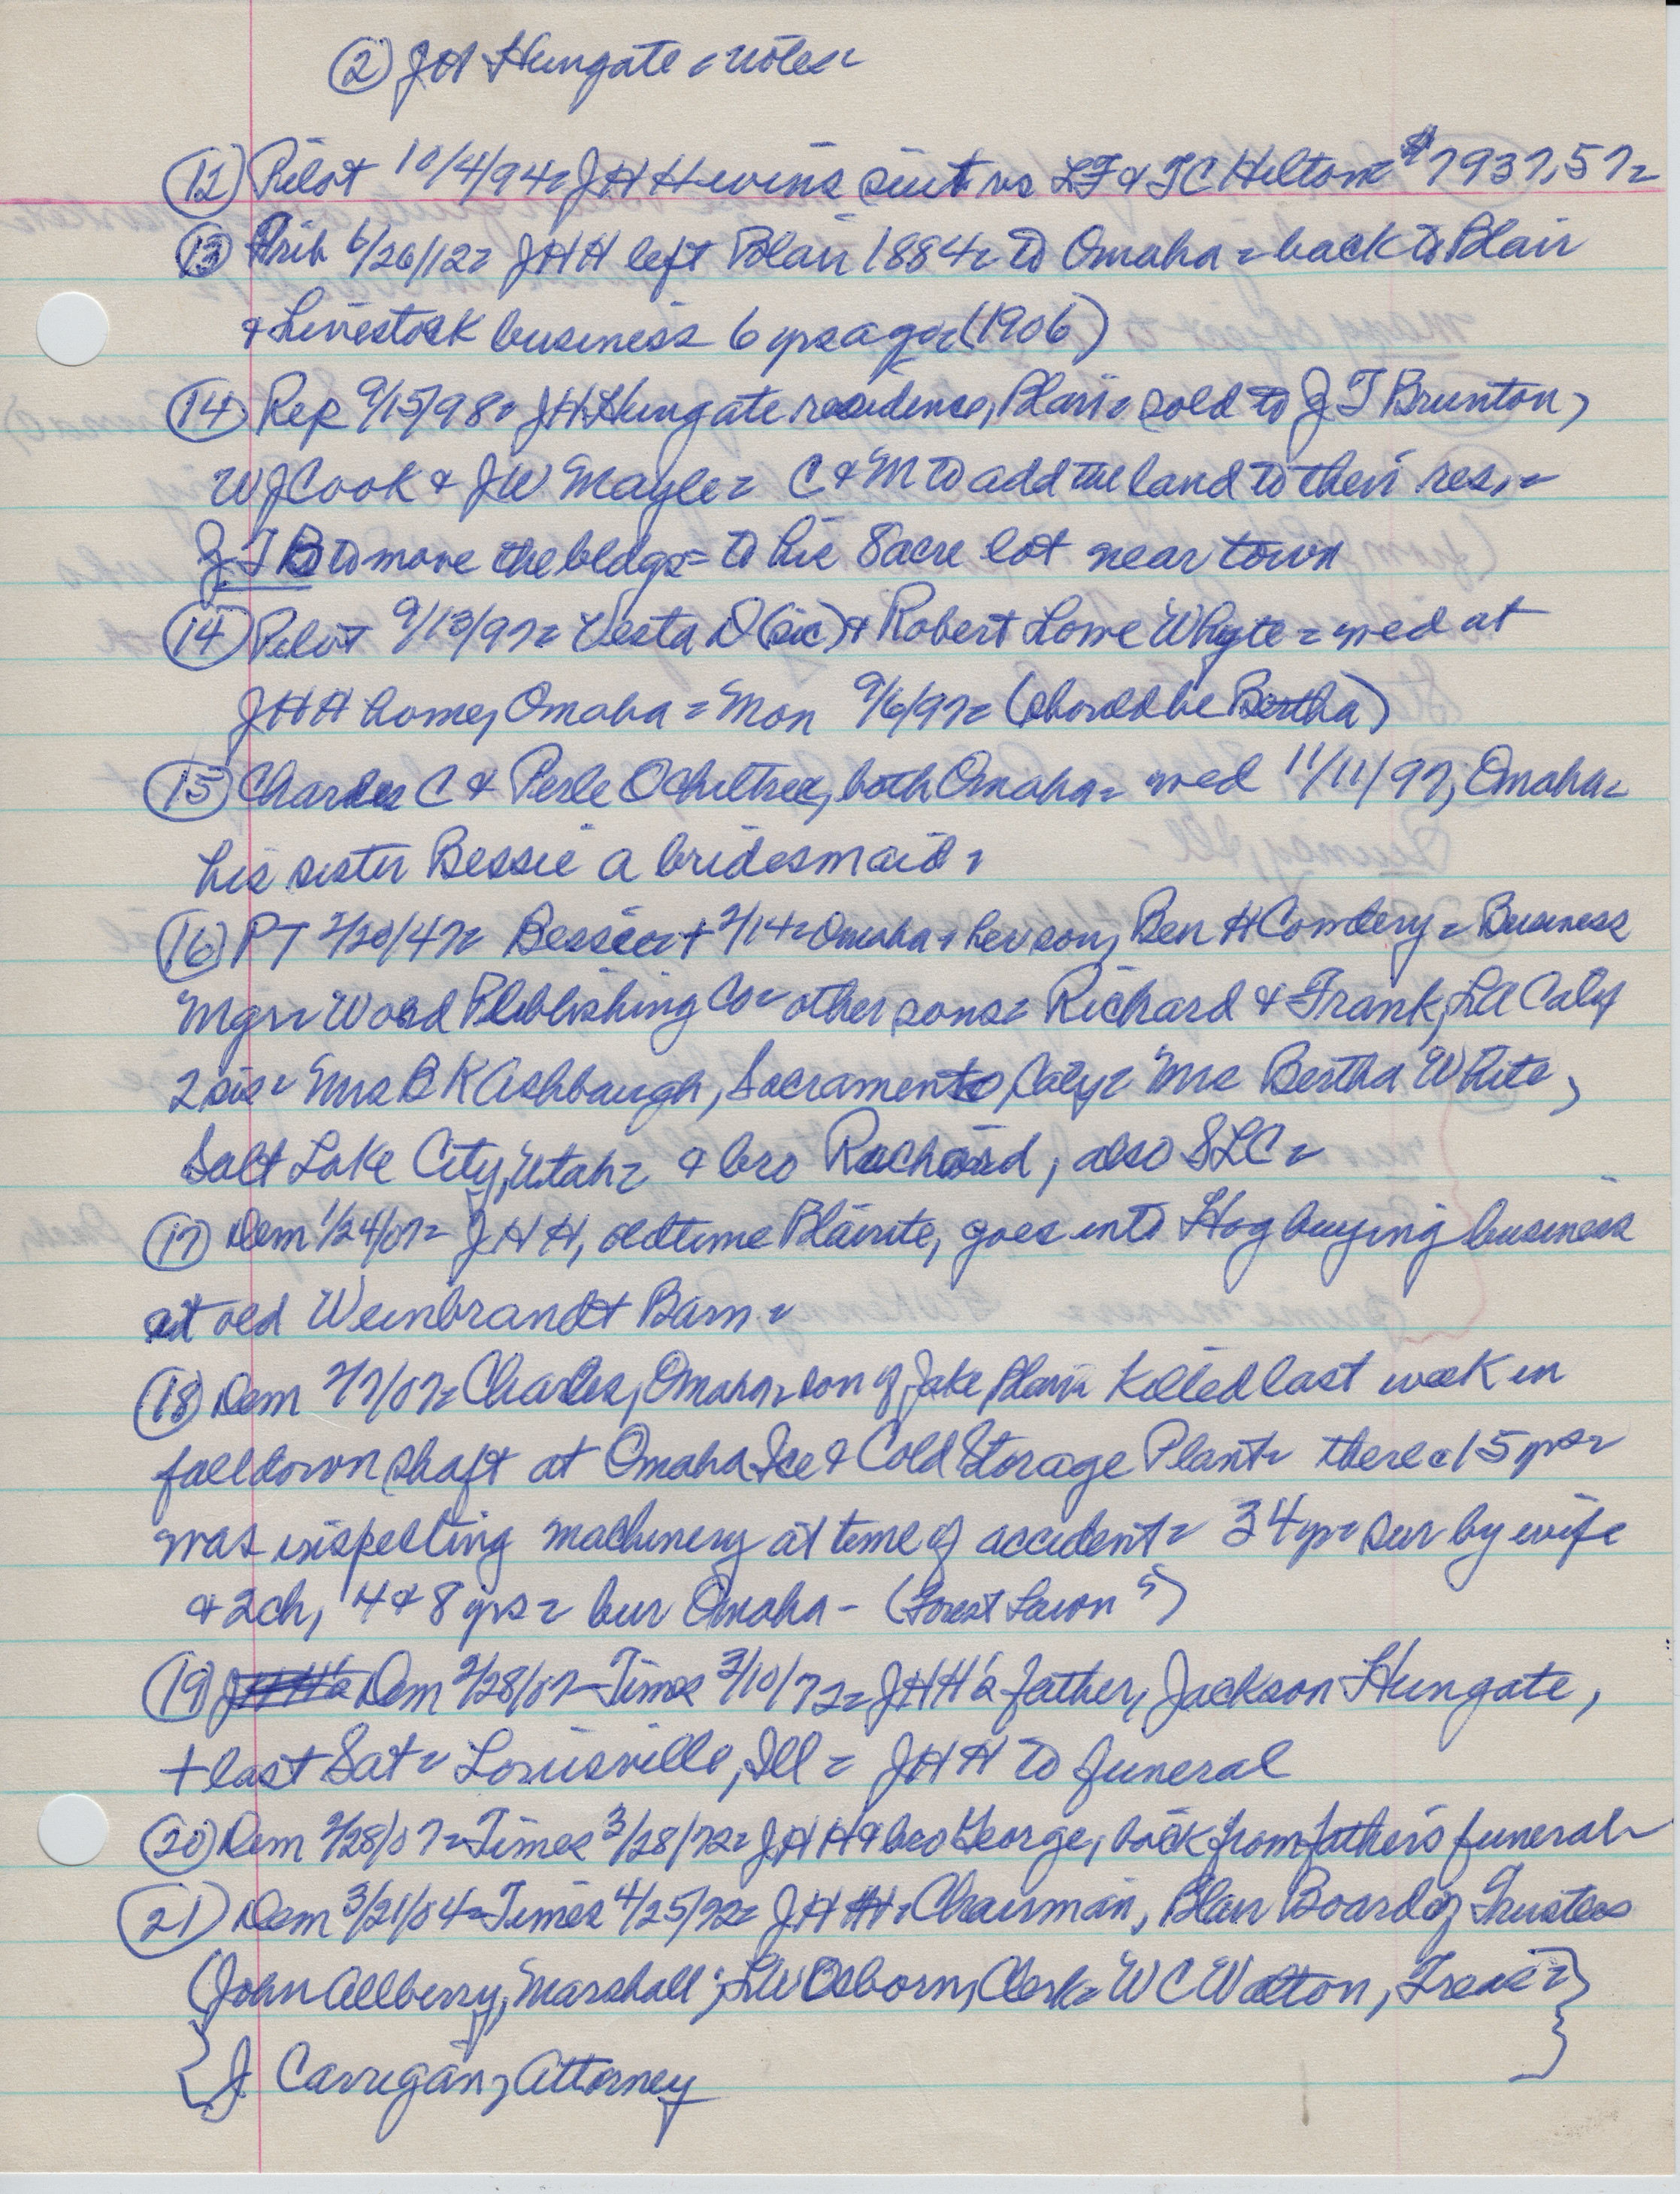 ② JH Hungate = notes =
⑫ Pilot 10/4/94 = JHH wins suit vs LF & TC Hilton = $7937,57 =
⑬ Trib 6/26/12 = JHH left Blair 1884 = to Omaha = back to Blair
& Livestock business 6 yrs ago = (1906)
⑭ Rep 9/15/98 = JH Hungate residence, Blair = sold to J T Brunton,
WJ Cook & JW Mayle = C & M to add the land to their res, =
J T B to move the bldgs = to his 8 acre lot near town
⑭ Pilot 9/13/97 = Vesta D (sic) & Robert Lowe Whyte = med at
JHH home, Omaha = Mon 9/6/97 = (should be Bertha)
⑮ Charles C & Perle Ochiltree, both Omaha = med 11/11/97, Omaha =
his sister Bessie a bridesmaid =
⑯ PT 2/20/47 = Bessie + 2/14 = Omaha = her son, Ben H Cowdery = Business
Mgr = World Publishing Co = other sons = Richard & Frank, LA Caly
2 sis = Mrs B K Ashbaugh, Sacramento, Caly = Mrs Bertha White,
Salt Lake City, Utah = & bro Richard, also SLC =
⑰ Dem 1/24/07 = JHH, oldtime Blairite, goes into Hog buying business
at old Weinbrandt Barn =
⑱ Dem 2/7/07 = Charles, Omaha = son of Jake, Blair = killed last week in
fall down shaft at Omaha Ice & Cold Storage Plant = there 15 yrs =
was inspecting machinery at time of accident = 34 yr = sur by wife
& 2 ch, 4 & 8 yrs = bur Omaha - (Forest Lawn
⑲ Dem 2/28/07 - Times 3/10/72 = JHH's father, Jackson Hungate,
+ last Sat = Louisville, Ill = JHH to funeral
⑳ Dem 2/28/07 = Times 3/28/72 = JHH & bro George, back from father's funeral =
㉑ Dem 3/21/04 = Times 4/25/72 = JHH = Chairman, Blair Board of Trustees
(John Allberry, Marshall; LW Osborn, Clerk = WC Walton, Treas =
J. Carrigan, Attorney